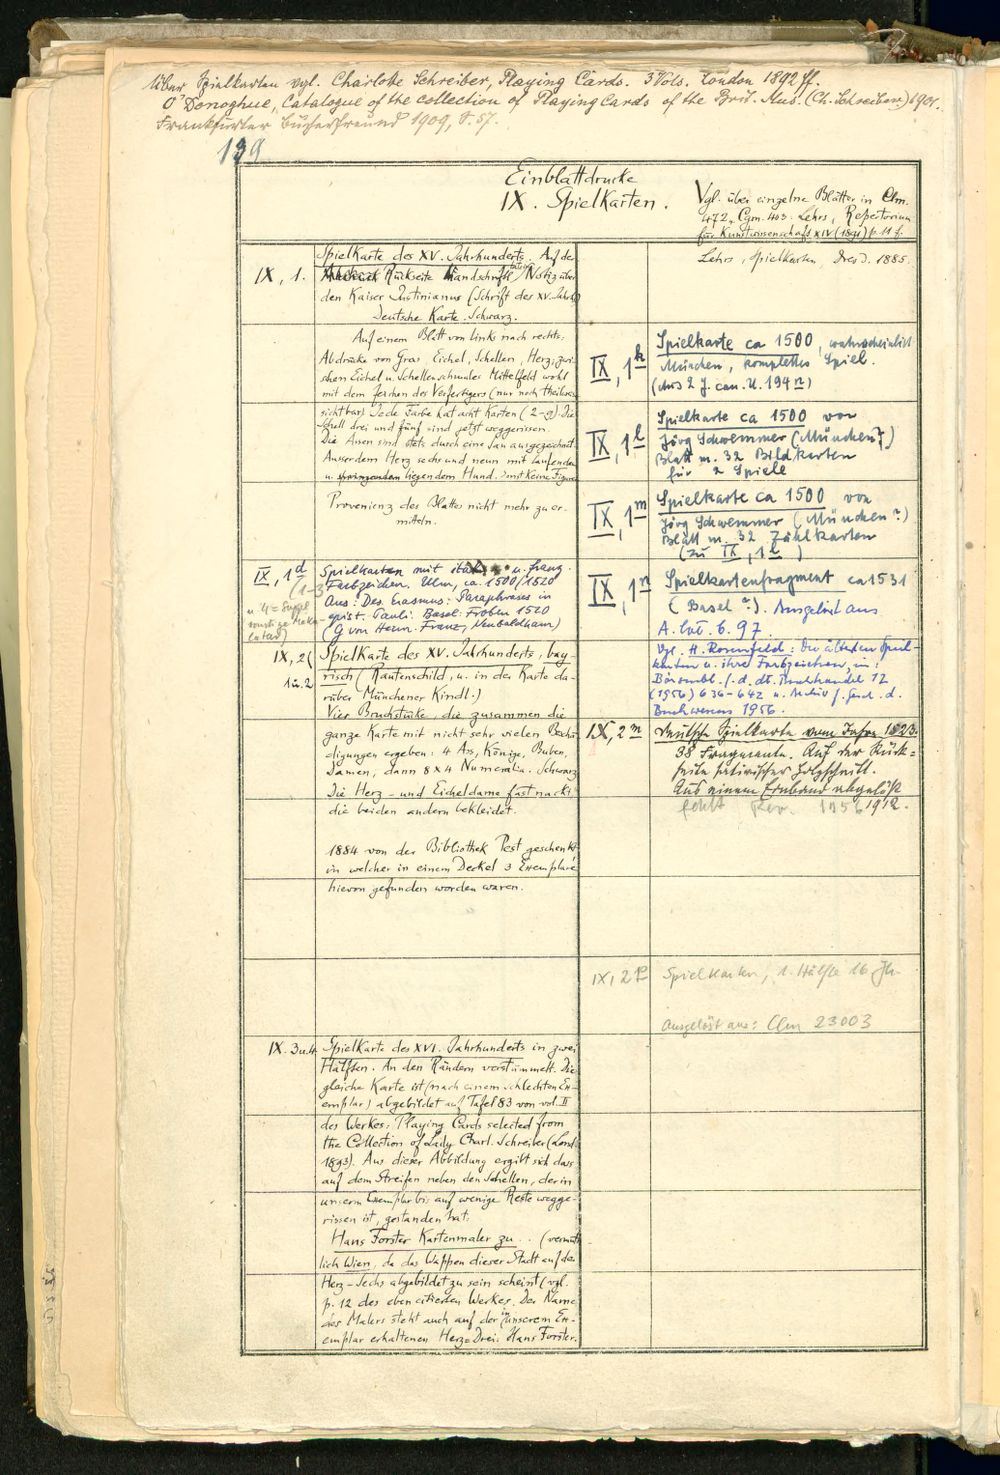 Über Spielkarten vgl. Charlotte Schreiber, Playing Cards. 3 Vols. London 1892 ff.
O'Donoghue, Catalogue of the collection of Playing Cards of the Brit. Mus. (Ch. Schreiber) 1901.
Frankfurter Bücherfreund 1909, S. 57.
139
Einblattdrucke
IX. Spielkarten.
Vgl. über einzelne Blätter in Clm.
472, Cgm. 403. Lehrs, Repertorium
für Kunstwissenschaft XIV (1891) p. 11 f.
Lehrs, Spielkarten, Dresd. 1885.
IX, 1. Spielkarte des XV. Jahrhunderts. Auf der
Rückseite Handschriftl. Notiz über
den Kaiser Justinianus (Schrift des XV. Jahrh.)
Deutsche Karte. Schwarz.
Auf einem Blatt von links nach rechts:
Abdrücke von Gras, Eichel, Schellen, Herz; zwi-
schen Eichel u. Schellen schmales Mittelfeld wohl
mit dem Zeichen des Verfertigers (nur noch theilweise
sichtbar) Jede Farbe hat acht Karten (2-9). Die
Schell drei und fünf sind jetzt weggerissen.
Die Assen sind stets durch eine Sau ausgezeichnet
Ausserdem Herz sechs und neun mit laufenden
u. springendem liegendem Hund. Sonst keine Figuren
Provenienz des Blattes nicht mehr zu er-
mitteln.
IX, 1d
(1-3
u. 4 = Suppl.
Spielkarten mit ital. u. franz.
Farbzeichen. Ulm, ca. 1500/1520
Aus: Des. Erasmus: Paraphrases in
epist. Pauli. Basel: Froben 1520
(G von Herrn Franz, Neubeldham)
IX, 2(
1 u. 2
Spielkarte des XV. Jahrhunderts, bay-
risch (Rautenschild, u. in der Karte da-
rüber Münchener Kindl.)
Vier Bruchstücke, die zusammen die
ganze Karte mit nicht sehr vielen Beschä-
digungen ergeben: 4 Ass, Könige, Buben,
Damen, dann 8 x 4 Numeralia. Schwarz
Die Herz- und Eicheldame fast nackt
die beiden andern bekleidet.
1884 von der Bibliothek Pest geschenkt
in welcher in einem Deckel 3 Exemplare
hievon gefunden worden waren.
IX. 3 u. 4. Spielkarte des XVI. Jahrhunderts in zwei
Hälften. An den Rändern verstümmelt. Die
gleiche Karte ist (nach einem schlechten Ex-
emplar) abgebildet auf Tafel 83 von vol. II
des Werkes: Playing Cards selected from
the Collection of Lady Charl. Schreiber (Lond.
1893). Aus dieser Abbildung ergibt sich dass
auf dem Streifen neben den Schellen, der in
unserm Exemplar bis auf wenige Reste wegge-
rissen ist, gestanden hat:
Hans Forster Kartenmaler zu . . (vermut-
lich Wien, da das Wappen dieser Stadt auf der
Herz-Sechs abgebildet zu sein scheint (vgl.
p. 12 des eben citierten Werkes. Der Name
des Malers steht auch auf der in unserem Ex-
emplar erhaltenen Herz-Drei: Hans Forster.
IX, 1k Spielkarte ca 1500, wahrscheinlich
München, komplettes Spiel.
(Aus 2 J. can. u. 194n)
IX, 1l Spielkarte ca 1500 von
Jörg Schwemmer (München?)
Blatt m. 32 Bildkarten
für 2 Spiele
IX, 1m Spielkarte ca 1500 von
Jörg Schwemmer (München?)
Blatt m. 32 Zählkarten
(zu IX, 1l)
IX, 1n Spielkartenfragment ca 1531
(Basel?). Ausgelöst aus
A. lat. b. 97.
Vgl. H. Rosenfeld: Die ältesten Spiel-
karten u. ihre Farbzeichen, in:
Börsenbl. f. d. dt. Buchhandel 12
(1956) 636-642 u. Archiv f. Gesch. d.
Buchwesens 1956.
IX, 2m Deutsche Spielkarte vom Jahre 1523.
38 Fragmente. Auf der Rück-
seite satirischer Holzschnitt.
Aus einem Einband abgelöst
1912.
fehlt Rev. 1956
IX, 2p Spielkarten, 1. Hälfte 16. Jh.
Ausgelöst aus: Clm 23003